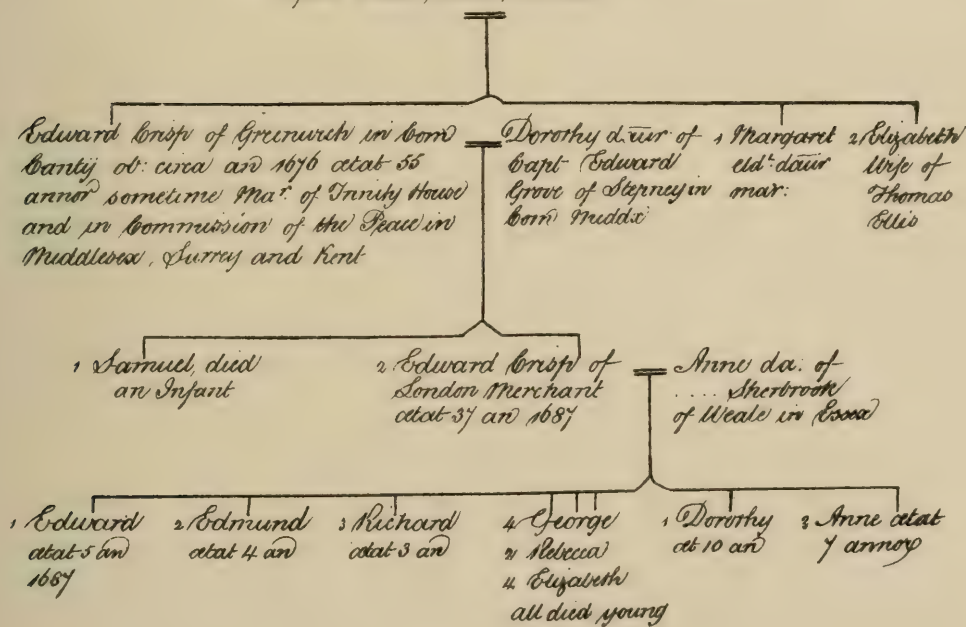 Edward Crisp of Greenwich in Com
Cantij ob: circa an 1676 ætat 55
annor sometime Mar. of Trinity House
and in Commission of the Peace in
Middlesex, Surrey and Kent
Dorothy daur of
Capt Edward
Grove of Stepney in
Com Middx
1 Margaret
eldt. daur
mar:
2 Elizabeth
Wife of
Thomas
Ellis
1 Samuel, died
an Infant
2 Edward Crisp of
London Merchant
ætat 37 an 1687
Anne da: of
.... Sherbrook
of Weale in Essex
1 Edward
ætat 5 an
1687
2 Edmund
ætat 4 an
3 Richard
ætat 3 an
4 George
2 Rebecca
4 Elizabeth
all died young
1 Dorothy
æt 10 an
3 Anne ætat
7 annor